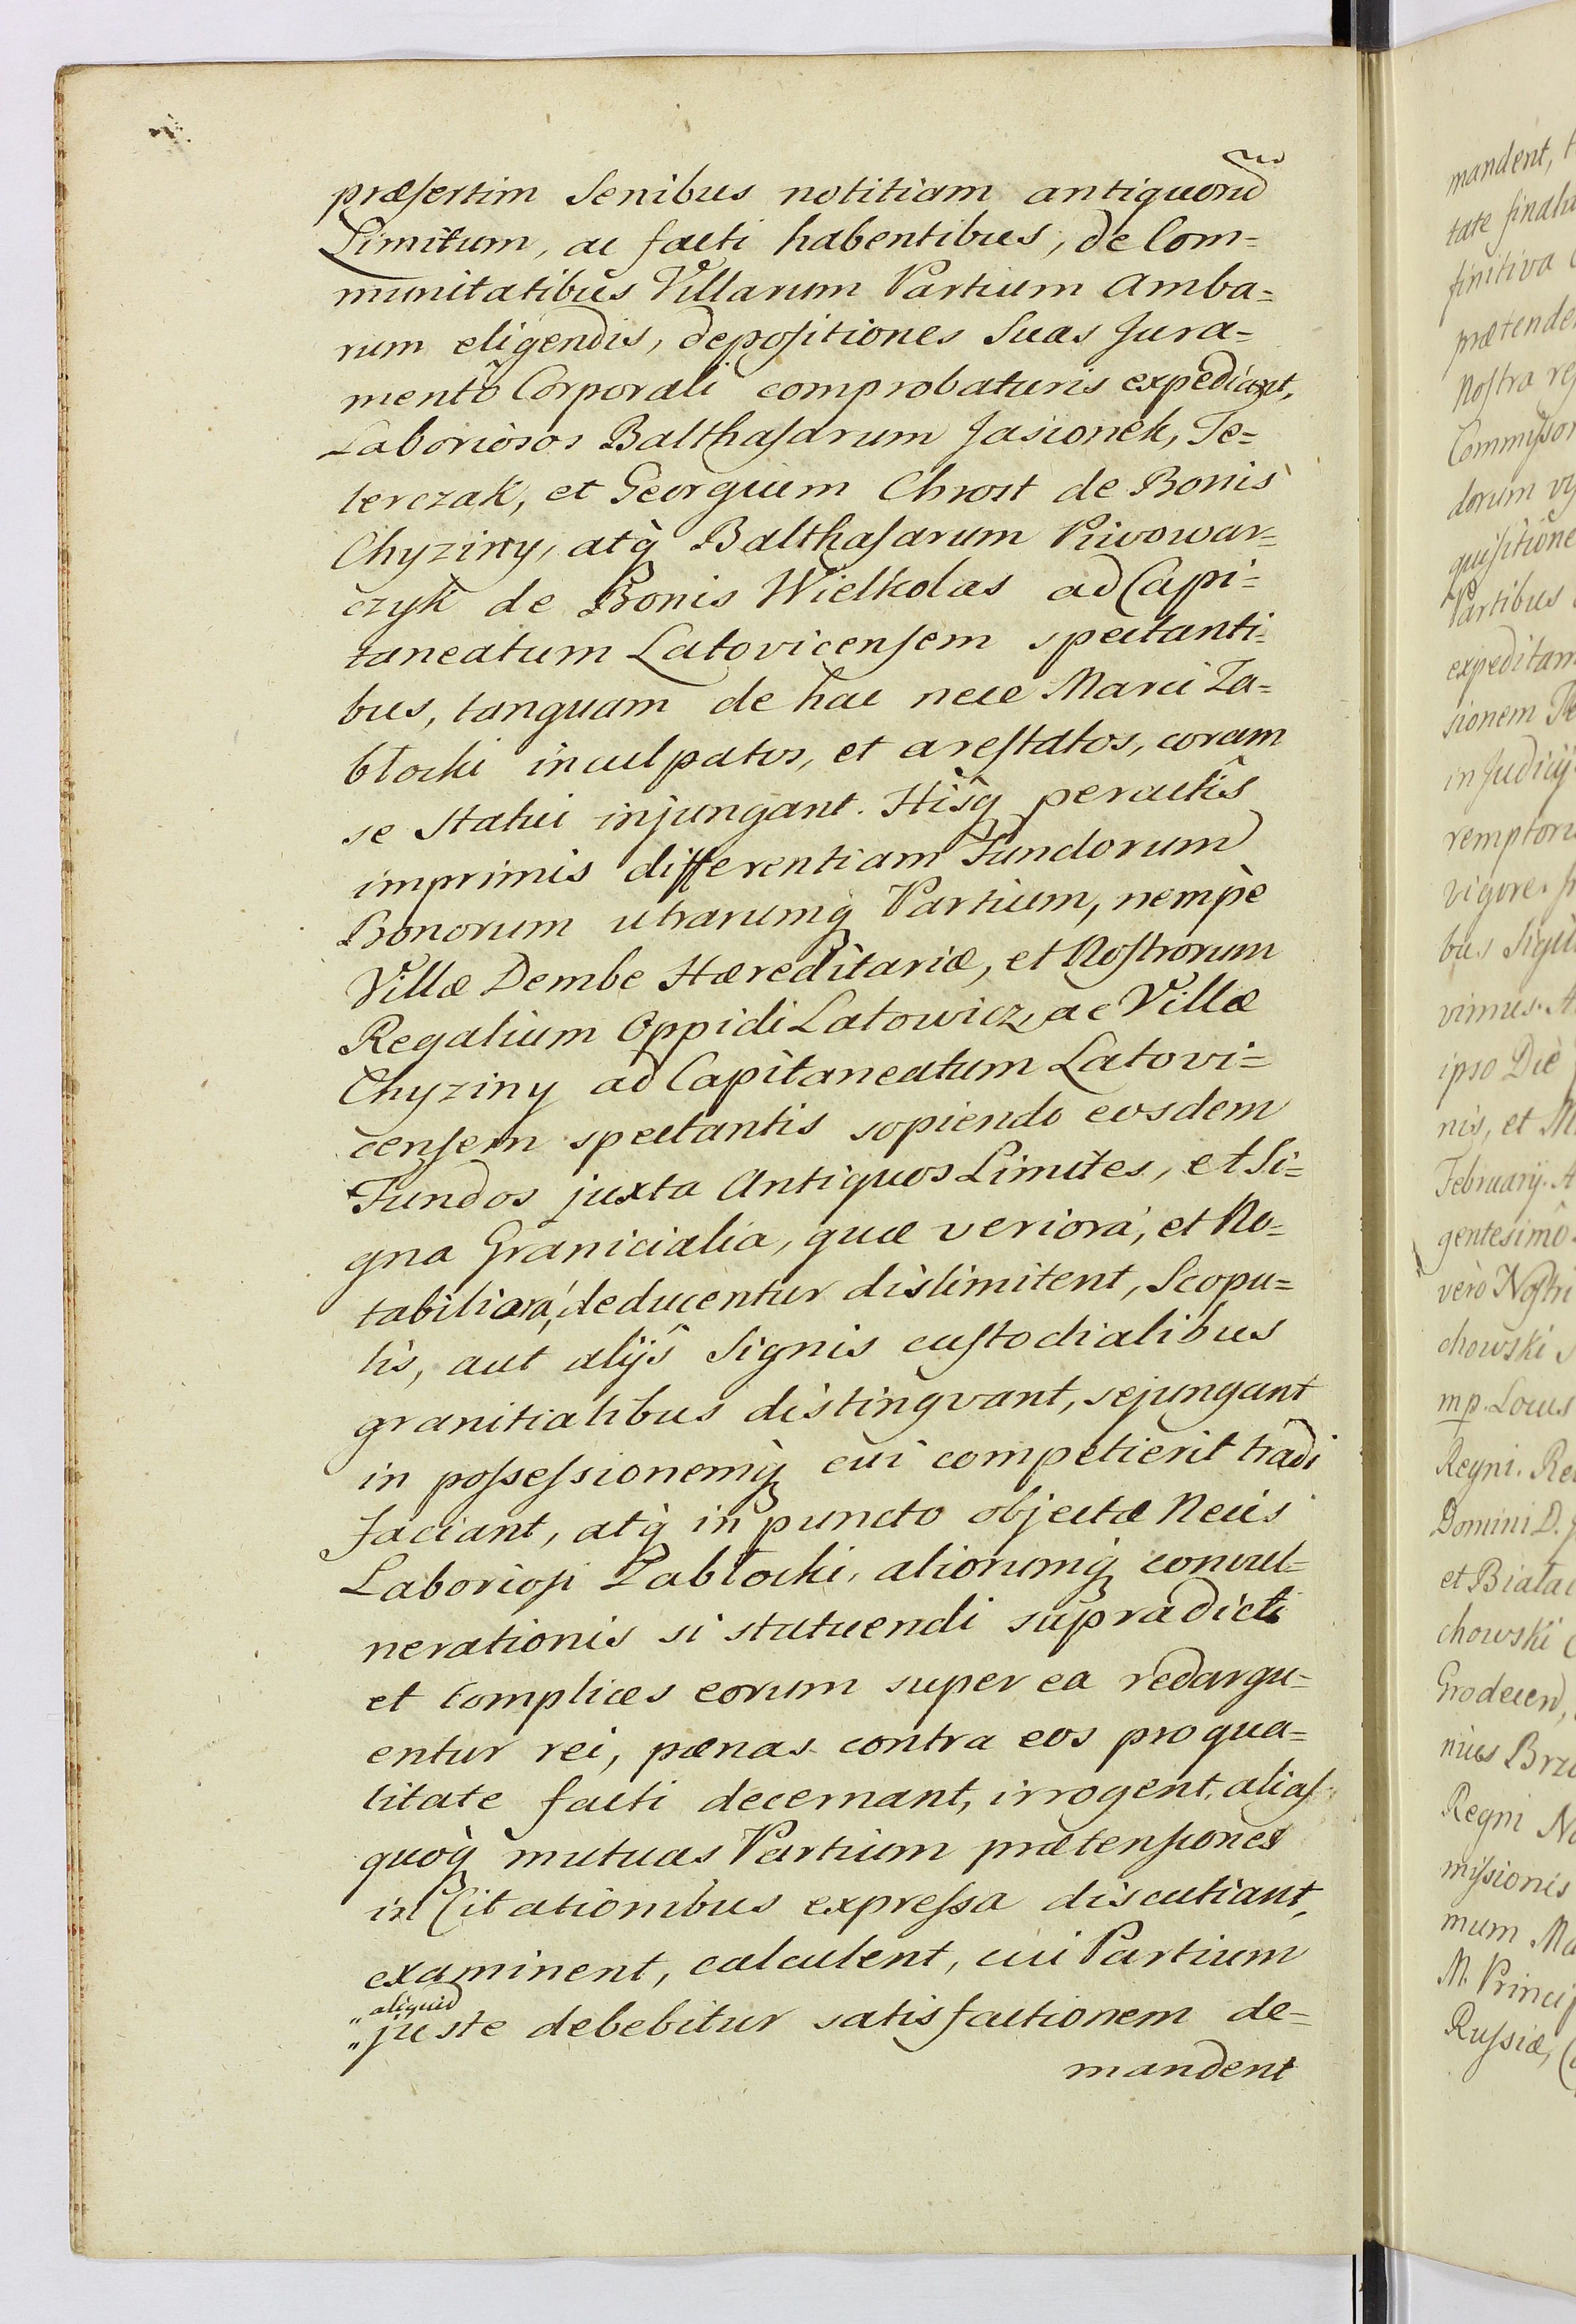 præsertim Senibus notitiam antiquorũ
Limitum, ac facti habentibus, de Com=
munitatibus Villarum Partium Amba=
rum eligendis, depositiones Suas Jura=
mentô Corporali comprobaturis expediant,
Laboriosos Balthasarum Jasionek, Te=
terczak, et Georgium Chrost de Bonis
Chyziny, atq̀ Balthasarum Piwowar=
czyk de Bonis Wielkolas ad Capi=
taneatum Latovicensem spectanti=
bus, tanquam de hac nece Marci Za=
błocki inculpatos, et arestatos, coram
se statui injungant. Hisq́ peractîs
imprimis differentiam Fundorum
Bonorum utrarumq́ Partium, nempè
Villæ Dembe Hæreditariæ, et Nostrorum
Regalium Oppidi Latowicz, ac Villæ
Chyziny ad Capitaneatum Latovi=
censem spectantis sopiendo eosdem
Fundos juxta Antiquos Limites, et Si=
gna Granicialia, quæ veriora, et No=
tabiliora, deducentur dislimitent, Scopu=
lis, aut alijs Signis custodialibus
granitialibus distingvant, sejungant
in possessionemq́ cui competierit tradi
faciant, atq̀ in puncto objectæ Necis
Laboriosi Zabłocki, aliorumq́ convul=
nerationis si statuendi supradicti
et Complices eorum super ea redargu=
entur rei, pænas contra eos pro qua=
litate facti decernant, irrogent, alias
quoq̀ mutuas Partium prætensiones
in Citationibus expressa discutiant,
examinent, calculent, cui Partium
„aliquid
„juste debebitur satisfactionem de=
mandent
mandent,
tate
finitiva
Nostra
dorum
Partibus
expeditam
sionem
in Judicij
vigore
bus
vimus.
ipso Die
nis, et
February.
gentesimô
verò Nostri
chowski
mp. Locus
Regni.
Domini D.
et Biała
chowski
nius
Regni
missionis
mum
M.
Russiæ,